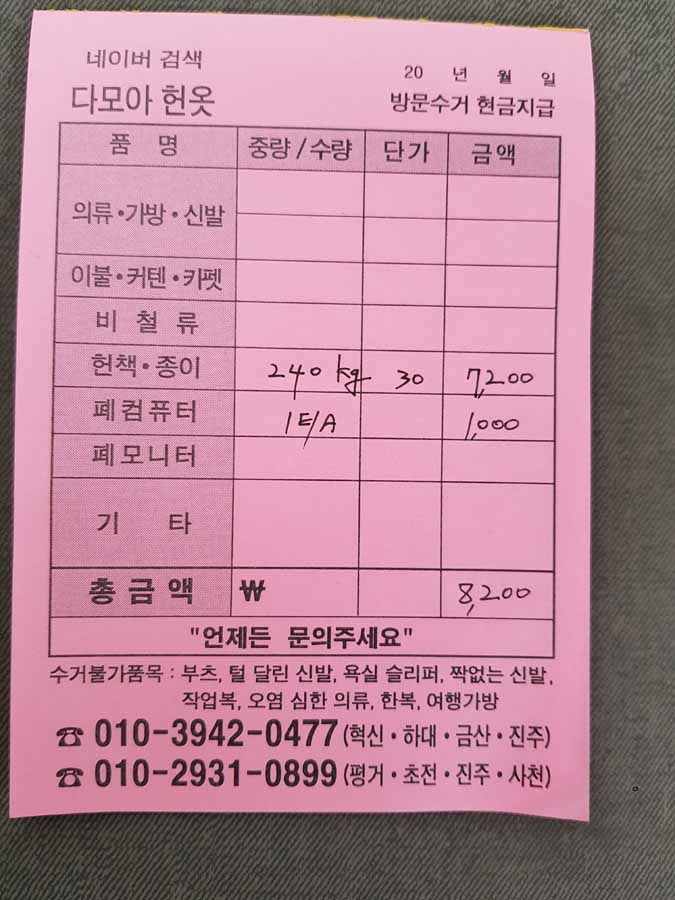 네이버 검색
20 년 월 일
다모아 헌옷
방문수거 현금지급
품 명 중량/수량 단가 금액
의류·가방·신발
이불·커텐·카펫
비 철 류
헌책·종이 240 kg 30 7,200
폐컴퓨터 1 E/A 1,000
폐모니터
기 타
총금액 ₩ 8,200
"언제든 문의주세요"
수거불가품목 : 부츠, 털 달린 신발, 욕실 슬리퍼, 짝없는 신발,
작업복, 오염 심한 의류, 한복, 여행가방
☎ 010-3942-0477 (혁신·하대·금산·진주)
☎ 010-2931-0899 (평거·초전·진주·사천)